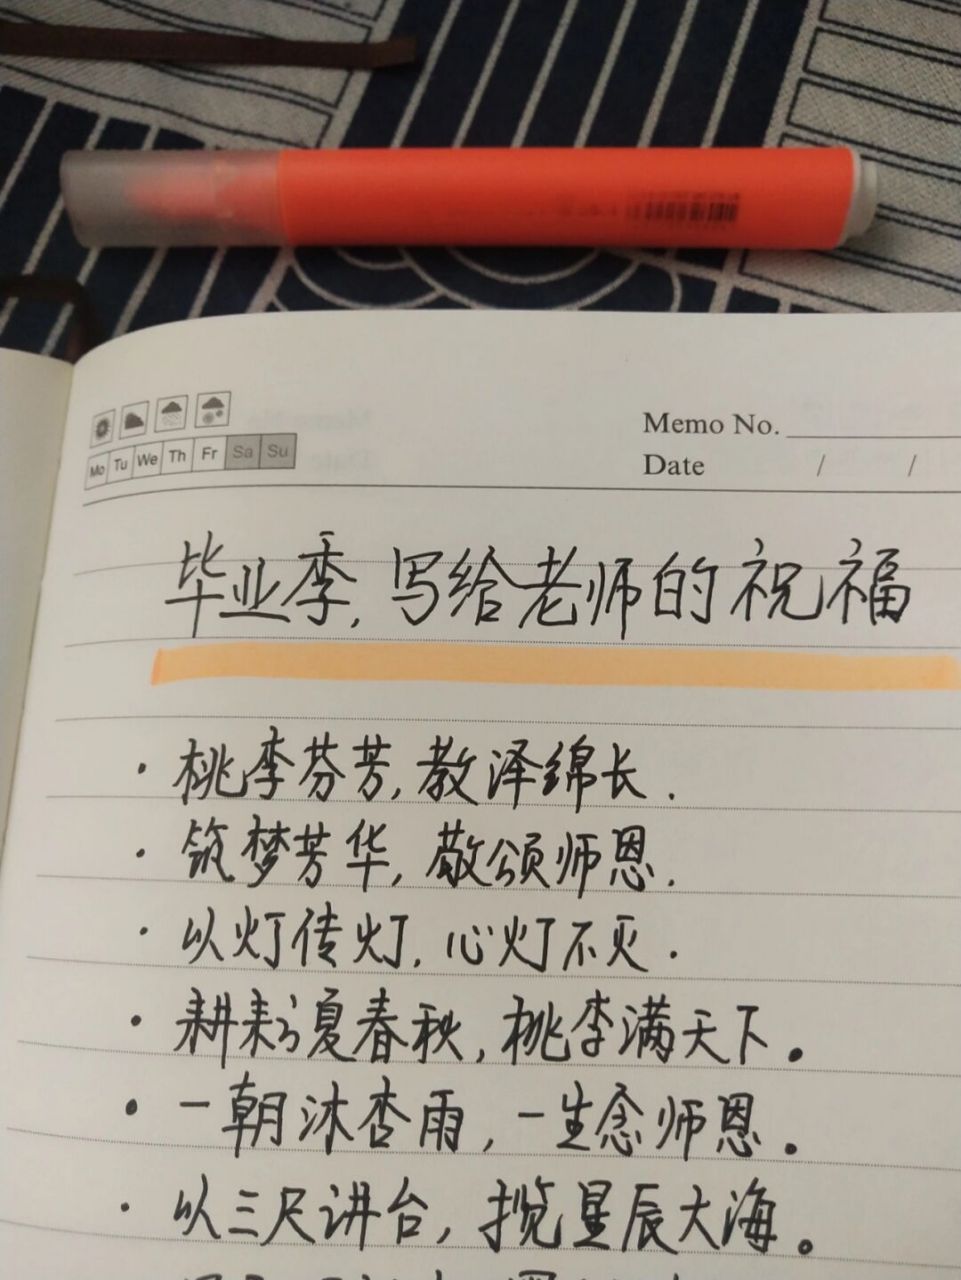 Memo No.
Mo Tu We Th Fr Sa Su
Date / /
毕业季,写给老师的祝福
· 桃李芬芳,教泽绵长.
· 筑梦芳华,敬颂师恩.
· 以灯传灯,心灯不灭.
· 耕耘夏春秋,桃李满天下。
· 一朝沐杏雨,一生念师恩。
· 以三尺讲台,揽星辰大海。